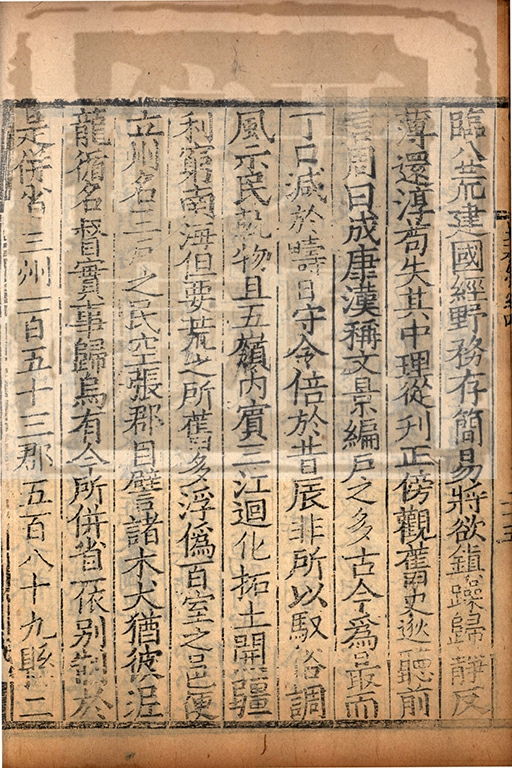 臨八荒建國經野務存簡易將欲鎮躁歸靜反
薄還淳苟失其中理從刋正傍觀舊史逖聽前
言周曰成康漢稱文景編戶之多古今爲最而
丁口減於疇日守令倍於昔辰非所以馭俗調
風示民軌物且五嶺內賓三江迴化拓土開疆
利窮南海但要荒之所舊多浮僞百室之邑便
立州名三戶之民空張郡目譬諸木犬猶彼泥
龍循名督實事歸烏有今所併省一依別制於
是併省三州一百五十三郡五百八十九縣二